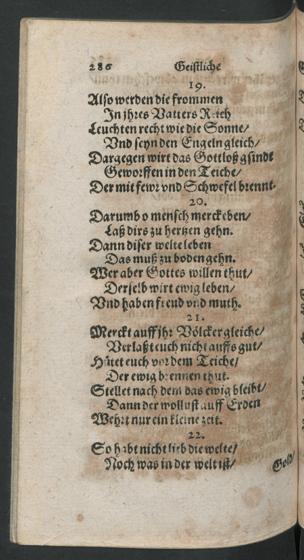 286 Geistliche
19.
Also werden die frommen
In jhres Vatters Reich
Leuchten recht wie die Sonne/
Vnd seyn den Engeln gleich/
Dargegen wirt das Gottloß gsindt
Geworffen in den Teiche/
Der mit fewr vnd Schwefel brennt.
20.
Darumb o mensch merck eben/
Laß dirs zu hertzen gehn.
Dann diser welte leben
Das muß zu boden gehn.
Wer aber Gottes willen thut/
Derselb wirt ewig leben/
Vnd haben freud vnd muth.
21.
Merckt auff jhr Völcker gleiche/
Verlaßt euch nicht auffs gut/
Hütet euch vor dem Teiche/
Der ewig brennen thut.
Stellet nach dem das ewig bleibt/
Dann der wollust auff Erden
Wehrt nur ein kleine zeit.
22.
So habt nicht lieb die welte/
Noch was in der welt ist/
Gold/